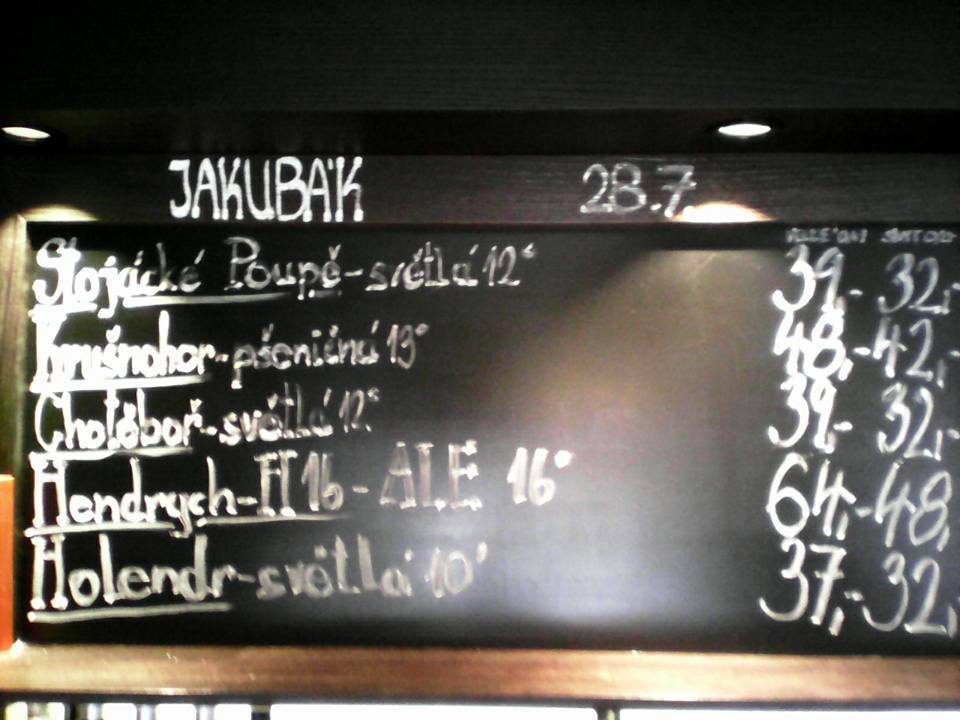 JAKUBÁK 28.7.
Slojácké Poupě-světlá 12° 39,- 32,-
Krušnohor-pšeničná 13° 48,- 42,-
Chotěboř-světlá 12° 39,- 32,-
Hendrych-H16-ALE 16° 64,- 48,
Holendr-světlá 10° 37,- 32,